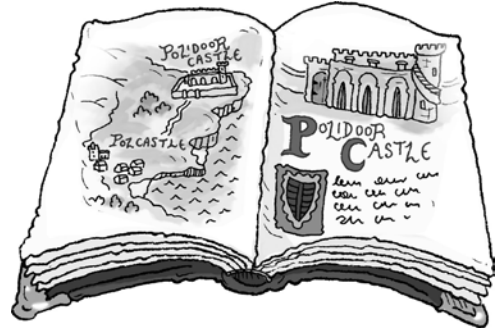 POZIDOOR
CASTLE
POZCASTLE
POZIDOOR
CASTLE